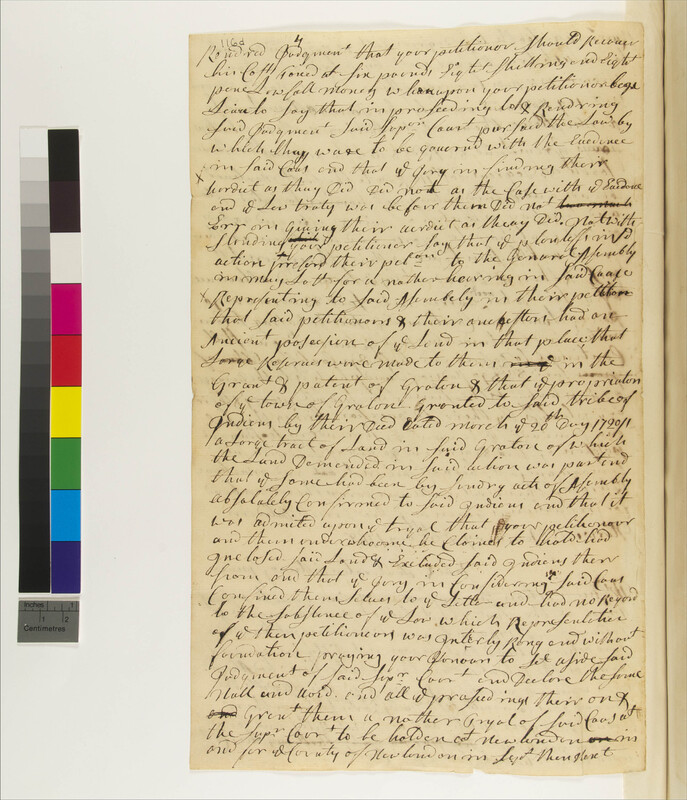 116d
Rendred Judgment that your petitionor Should Recover
his Cost taxed at Six pounds Eight Shilling and Eight
pence Lowfall money whereupon your petitionor begs
Leave to Say that in proseeding to & Rendring
Said Judgment Said Supor Court pursued the Law by
which thay ware to be govern'd with the Evedence
in Said Caus and that ye Jury in finding their
verdict as thay Did Did not as the Case with ye Evedence
and ye Law truly was before them Did not
Err in Giving their verdict as theay Did. Notwith
Standing your petitionor Say that ye plentefs in sd
action prefered their petion to the Genarel Assembly
in may Last for a nother hearing in Said Caus
Representing to Said Assembely in their petition
that Said petitionors & their ancestors had an
Ancient posession of ye Land in that place, that
Large Reserves were made to them in the
Grant & patent of Groton & that ye propriators
of ye town of Groton Granted to Said tribe of
Indiens by their Died Dated March ye 20th Day 1720/1
a Large tract of Land in Said Groton of which
the Land Demended in Said action was part and
that ye Same had been by Sundry acts of Assembly
absolutely Confirmed to Said Indiens and that it
was admited upon ye tryal that your petitionour
and them under whoome he Claimes to hold had
Inclosed Said Land & Excluded Said Indiens there
from and that ye Jury in Considering Said Caus
Confined themselves to ye Letter and had no Regard
to the Substence of ye Law which Representetion
of ye then petitioneors was Enterly Rong and without
foundation praying your Honours to Set aside Said
Judgment of Said Supr Court and Declare the Same
Null and Void. and all ye proseedings their on &
Grant them a nother Tryal of Said Caus at
the Supr Court to be holden at Newlondon in
and for ye County of Newlondon in Sept then Next
Inches 1 2
Centimetres